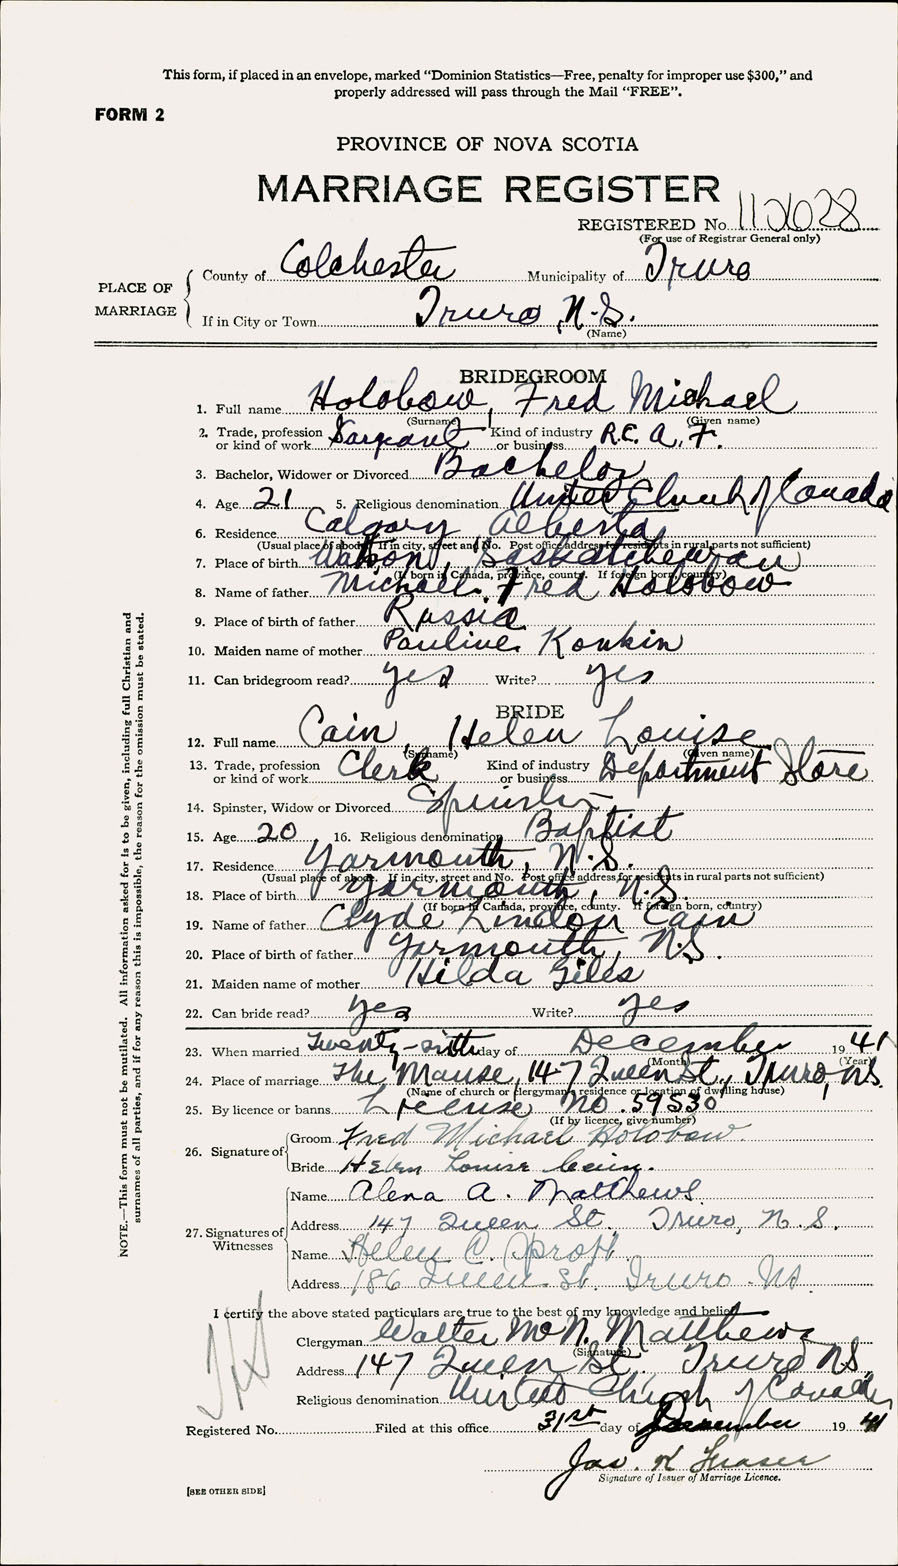 This form, if placed in an envelope, marked “Dominion Statistics—Free, penalty for improper use $300,” and
properly addressed will pass through the Mail “FREE”.
FORM 2
PROVINCE OF NOVA SCOTIA
MARRIAGE REGISTER
REGISTERED No. 112628
(For use of Registrar General only)
PLACE OF MARRIAGE
County of Colchester Municipality of Truro
If in City or Town Truro, N.S.
(Name)
BRIDEGROOM
1. Full name Holobow, Fred Michael
(Surname) (Given name)
2. Trade, profession or kind of work Sargeant Kind of industry or business R.C.A.F.
3. Bachelor, Widower or Divorced Bachelor
4. Age 21 5. Religious denomination United Church of Canada
6. Residence Calgary Alberta
(Usual place of abode. If in city, street and No. Post office address for residents in rural parts not sufficient)
7. Place of birth Watson, Saskatchewan
(If born in Canada, province, county. If foreign born, country)
8. Name of father Michael Fred Holobow
9. Place of birth of father Russia
10. Maiden name of mother Pauline Konkin
11. Can bridegroom read? yes Write? yes
BRIDE
12. Full name Cain, Helen Louise
(Surname) (Given name)
13. Trade, profession or kind of work Clerk Kind of industry or business Department Store
14. Spinster, Widow or Divorced Spinster
15. Age 20 16. Religious denomination Baptist
17. Residence Yarmouth, N.S.
(Usual place of abode. If in city, street and No. Post office address for residents in rural parts not sufficient)
18. Place of birth Yarmouth, N.S.
(If born in Canada, province, county. If foreign born, country)
19. Name of father Clyde Lindon Cain
20. Place of birth of father Yarmouth, N.S.
21. Maiden name of mother Hilda Giles
22. Can bride read? yes Write? yes
23. When married Twenty-sixth day of December 1941
(Month) (Year)
24. Place of marriage The Manse, 147 Queen St., Truro, N.S.
(Name of church or clergyman's residence or location of dwelling house)
25. By licence or banns License No. 59530
(If by licence, give number)
26. Signature of Groom Fred Michael Holobow.
Bride Helen Louise Cain.
27. Signatures of Witnesses
Name Alena A. Matthews
Address 147 Queen St. Truro, N.S.
Name Helen C. Sproft
Address 186 Queen St. Truro. NS
I certify the above stated particulars are true to the best of my knowledge and belief
Clergyman Walter McN. Matthews
(Signature)
Address 147 Queen St. Truro NS
Religious denomination United Church of Canada
Registered No. Filed at this office 31st day of December 1941
Jas. K Fraser
Signature of Issuer of Marriage Licence.
[SEE OTHER SIDE]
NOTE.—This form must not be mutilated. All information asked for is to be given, including full Christian and
surnames of all parties, and if for any reason this is impossible, the reason for the omission must be stated.